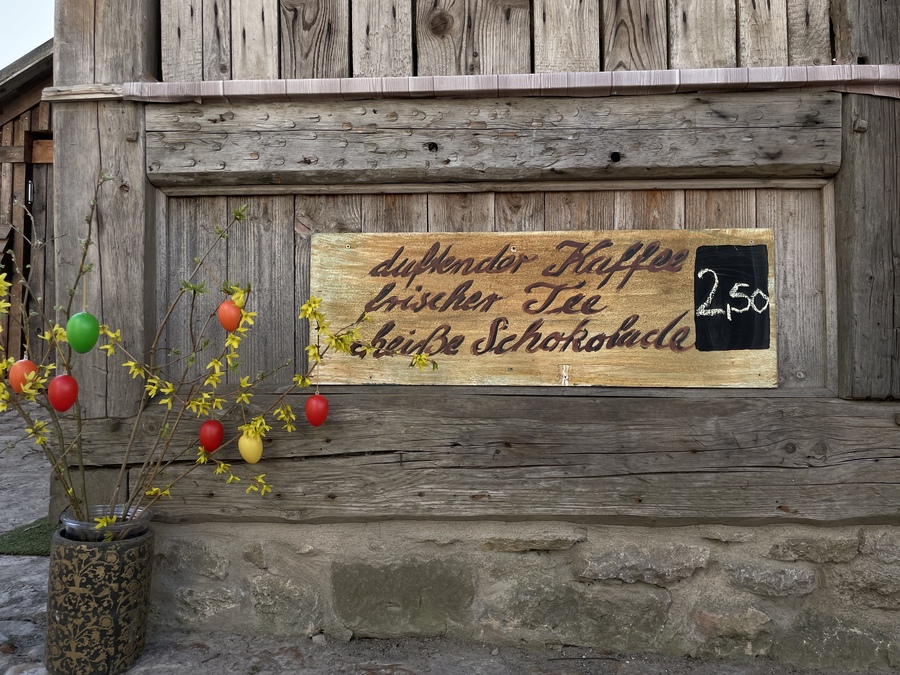 duftender Kaffee
frischer Tee
heiße Schokolade
2,50